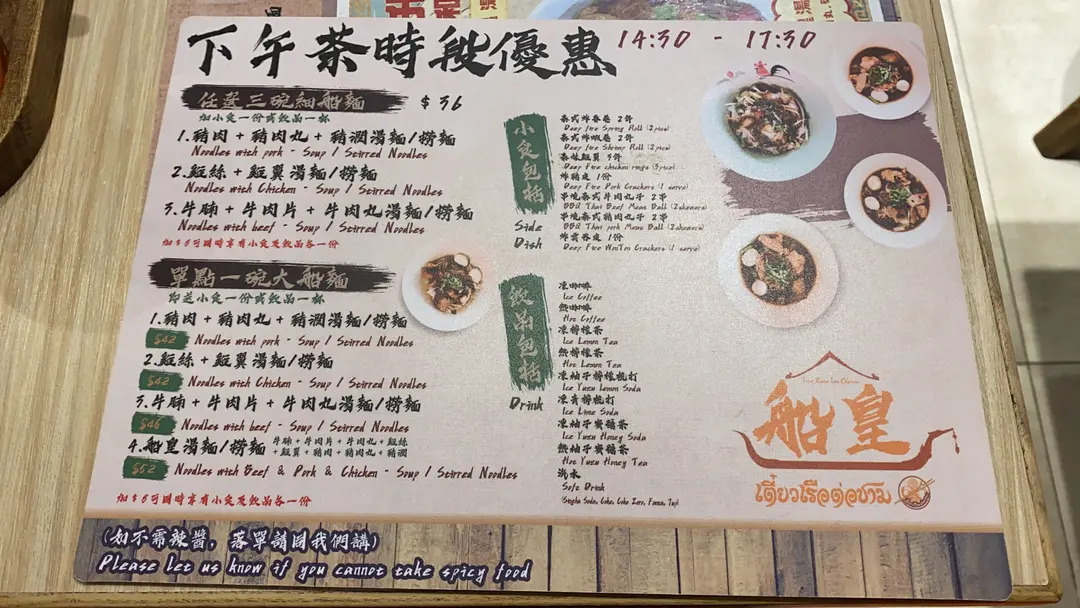 下午茶時段優惠 14:30 - 17:30
任選三碗細船麵 $36
加小食一份或飲品一杯
1.豬肉 + 豬肉丸 + 豬潤湯麵/撈麵
Noodles with pork - Soup / Stirred Noodles
2.雞絲 + 雞翼湯麵/撈麵
Noodles with Chicken - Soup / Stirred Noodles
3.牛腩 + 牛肉片 + 牛肉丸湯麵/撈麵
Noodles with beef - Soup / Stirred Noodles
加$6可同時享有小食及飲品各一份
單點一碗大船麵
即送小食一份或飲品一杯
1.豬肉 + 豬肉丸 + 豬潤湯麵/撈麵
$42 Noodles with pork - Soup / Stirred Noodles
2.雞絲 + 雞翼湯麵/撈麵
$42 Noodles with Chicken - Soup / Stirred Noodles
3.牛腩 + 牛肉片 + 牛肉丸湯麵/撈麵
$46 Noodles with beef - Soup / Stirred Noodles
4.船皇湯麵/撈麵 牛腩 + 牛肉片 + 牛肉丸 + 雞絲
+ 雞翼 + 豬肉 + 豬肉丸 + 豬潤
$52 Noodles with Beef & Pork & Chicken - Soup / Stirred Noodles
加$6可同時享有小食及飲品各一份
小食包括
Side Dish
泰式炸春卷 2件
Deep fire Spring Roll (2pics)
泰式炸蝦卷 2件
Deep fire Shrimp Roll (2pics)
泰味雞翼 3件
Deep Fire chicken wings (3pics)
炸豬皮 1份
Deep Fire Pork Crackers (1 serve)
串燒泰式牛肉丸子 2串
BBQ Thai Beef Meat Ball (2skewers)
串燒泰式豬肉丸子 2串
BBQ Thai pork Meat Ball (2skewers)
炸雲吞皮 1份
Deep Fire WonTon Crackers (1 serve)
飲品包括
Drink
凍咖啡
Ice Coffee
熱咖啡
Hot Coffee
凍檸檬茶
Ice Lemon Tea
熱檸檬茶
Hot Lemon Tea
凍柚子檸檬梳打
Ice Yuzu Lemon Soda
凍青檸梳打
Ice Lime Soda
凍柚子蜜糖茶
Ice Yuzu Honey Soda
熱柚子蜜糖茶
Hot Yuzu Honey Tea
汽水
Soft Drink
(Singha Soda, Coke, Coke Zero, Fanta, Tup)
船皇
เตี๋ยวเรือต่อชาม
(如不需辣醬，落單請同我們講)
Please let us know if you cannot take spicy food